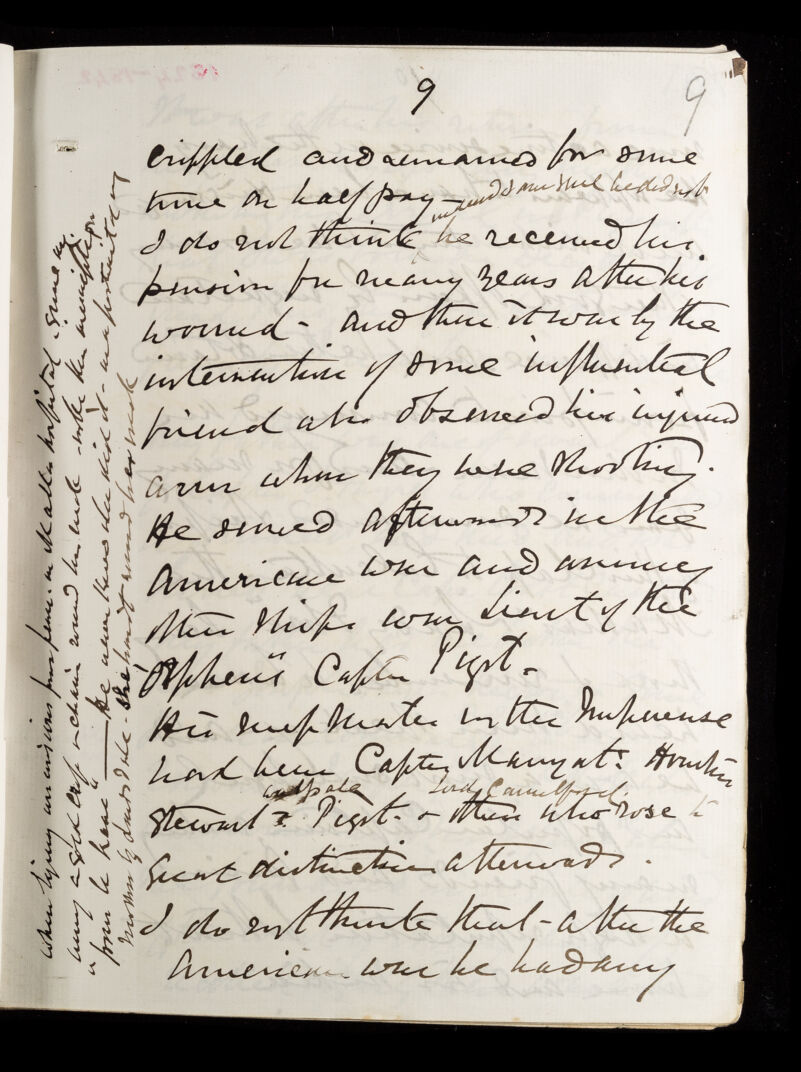 9
9
crippled and remained for some
time on half pay
I do not think he received his
pension for many years after his
wound - and then it was by the
intervention of some influential
friend who observed his injured
arm when they were shooting.
He served afterwards in the
American war and among
other ships was Lieut of the
Orpheus Captn Pigot -
His messmates in the Imperieuse
had been Captn Marryat: Houston
Walpole Lord
Stewart Pigot - & others who rose to
Great distinction afterwards.
I do not think that - after the
American war he had any
when lying in Malta hospital
a gold cap chain round his neck - with the inscription
he never knew who did it - a portrait of
round her neck